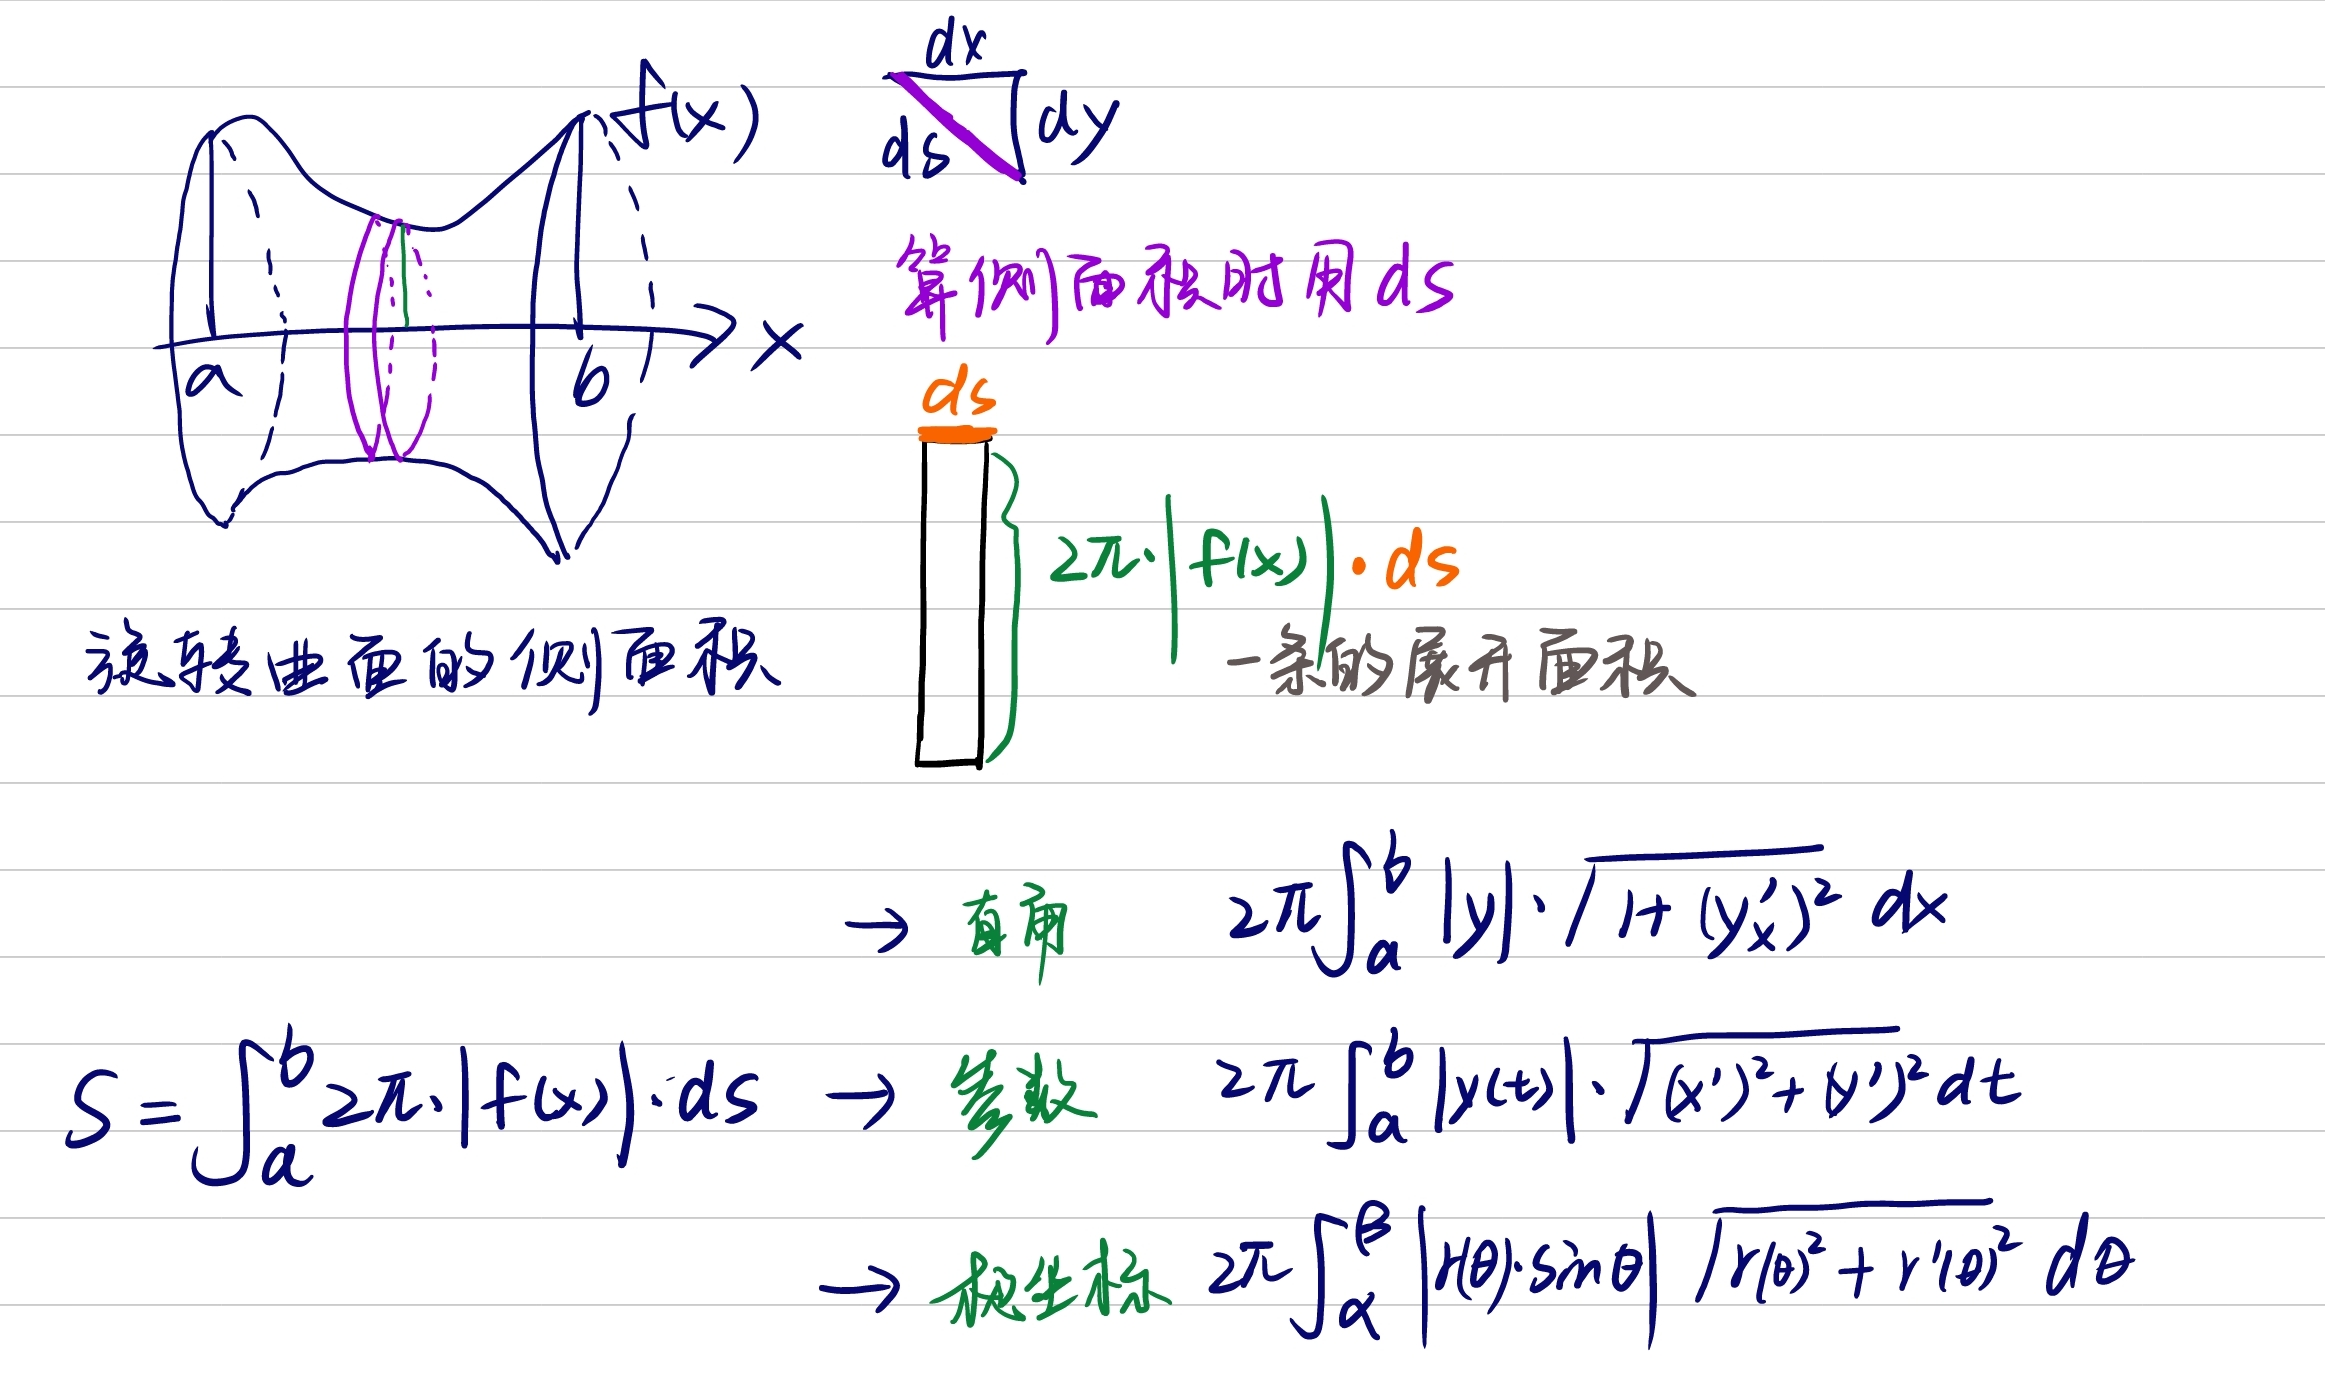 f(x)
a
b
x
dx
dy
ds
算侧面积时用ds
ds
2π·|f(x)|·ds
一条的展开面积
旋转曲面的侧面积
S=∫ₐᵇ2π·|f(x)|·ds
→ 直角 2π∫ₐᵇ|y|·√(1+(y'ₓ)²) dx
→ 参数 2π∫ₐᵇ|y(t)|·√((x')²+(y')²) dt
→ 极坐标 2π∫_α^β|r(θ)·sinθ| √(r(θ)²+r'(θ)²) dθ